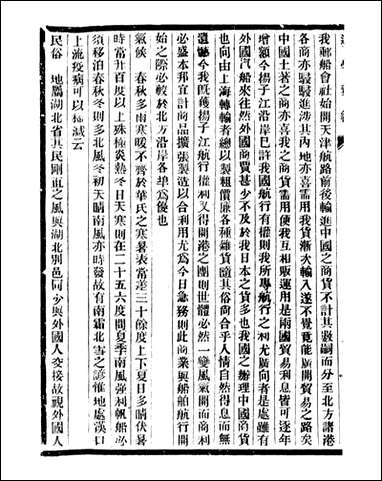 我郵船會社始開天津航路前後輸進中國之商貨不計其數嗣而分至北方諸港
各商亦駸駸進涉其內地亦喜需用我貨漸次輸入遂不覺竟能廣開貿易之路矣
中國土著之商亦喜我之商貨需用使我互相販運用是兩國貿易利息皆可逐年
增額今揚子江沿岸已許我國航行有權則我所專航行之利尤廣向者是處雖有
外國汽船來往然外國商賈甚少不及於我日本之貨多也我國之辦理中國商貨
也向由上海轉輸者總以製粗價廉各種雜貨隨其俗尚合乎人情自然得息而無
遺憾今我既獲揚子江航行權利又得開港之團則世體必然一變風氣開而商利
必盛本邦宜計商品擴張製造以合利用尤為今日急務則此商業與船舶航行開
始之際必較於北方沿岸各埠為優也
氣候　春秋多雨寒暖不齊於華氏之寒暑表當差三十餘度上下夏日多晴伏暑
時當升百度以上殊極炎熱冬日天寒則在二十五六度間夏季南風強利帆船必
須移泊春秋則多北風冬初天晴南風亦時發故有南霜北雪之諺惟地處漢口
上流疫病可以極減云
民俗　地屬湖北省其民剛直之風與湖北別邑同少與外國人交接故視外國人